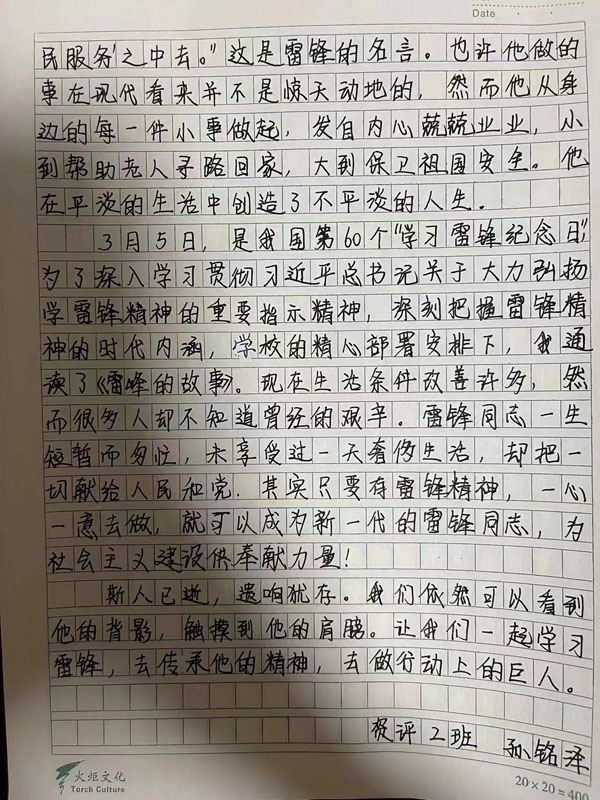 Date
民服务'之中去。"这是雷锋的名言。也许他做的
事在现代看来并不是惊天动地的，然而他从身
边的每一件小事做起，发自内心兢兢业业，小
到帮助老人寻路回家，大到保卫祖国安全。他
在平淡的生活中创造了不平淡的人生.
3月5日，是我国第60个"学习雷锋纪念日"，
为了深入学习贯彻习近平总书记关于大力弘扬
学雷锋精神的重要指示精神，深刻把握雷锋精
神的时代内涵，学校的精心部署安排下，我通
读了《雷峰的故事》。现在生活条件改善许多，然
而很多人却不知道曾经的艰辛。雷锋同志一生
短暂而匆忙，未享受过一天奢侈生活，却把一
切献给人民和党.其实只要有雷锋精神，一心
一意去做，就可以成为新一代的雷锋同志，为
社会主义建设供奉献力量！
斯人已逝，遗响犹存。我们依然可以看到
他的背影，触摸到他的肩膀。让我们一起学习
雷锋，去传承他的精神，去做行动上的巨人。
资评2班 孙铭泽
火炬文化
Torch Culture
20×20=400